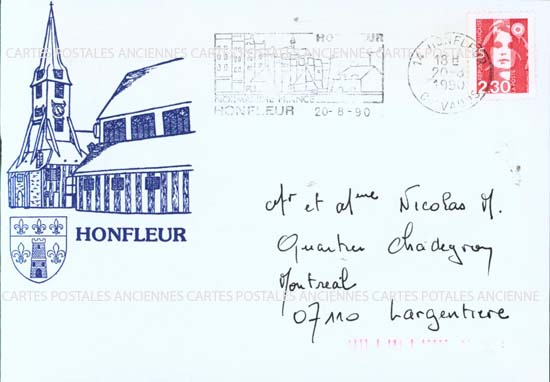 CARTES POSTALES ANCIENNES CARTES POSTALES ANCIENNES CARTES POSTALES ANCIENNES
HONFLEUR
NORMANDIE FRANCE
HONFLEUR 20-8-90
14 HONFLEUR
18 H
20-8
1990
2,30
HONFLEUR
Mr et Mme Nicolas M.
Quartier Chadeyron
Montreal
07110 Largentiere
CARTES POSTALES ANCIENNES CARTES POSTALES ANCIENNES CARTES POTALES ANCIENNE